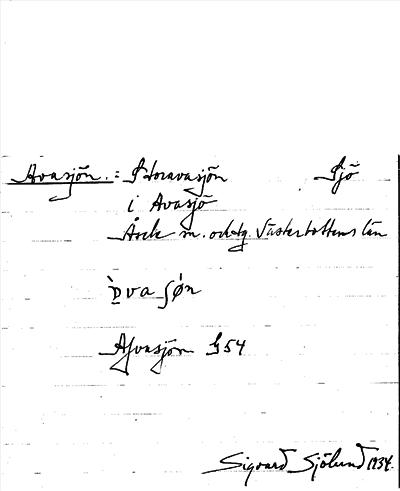 Avasjön. = Storavasjön Sjö
i Avasjö
Åsele sn. och tg. Västerbottens län
Afvasjön G 54
Sigvard Sjölund 1934.